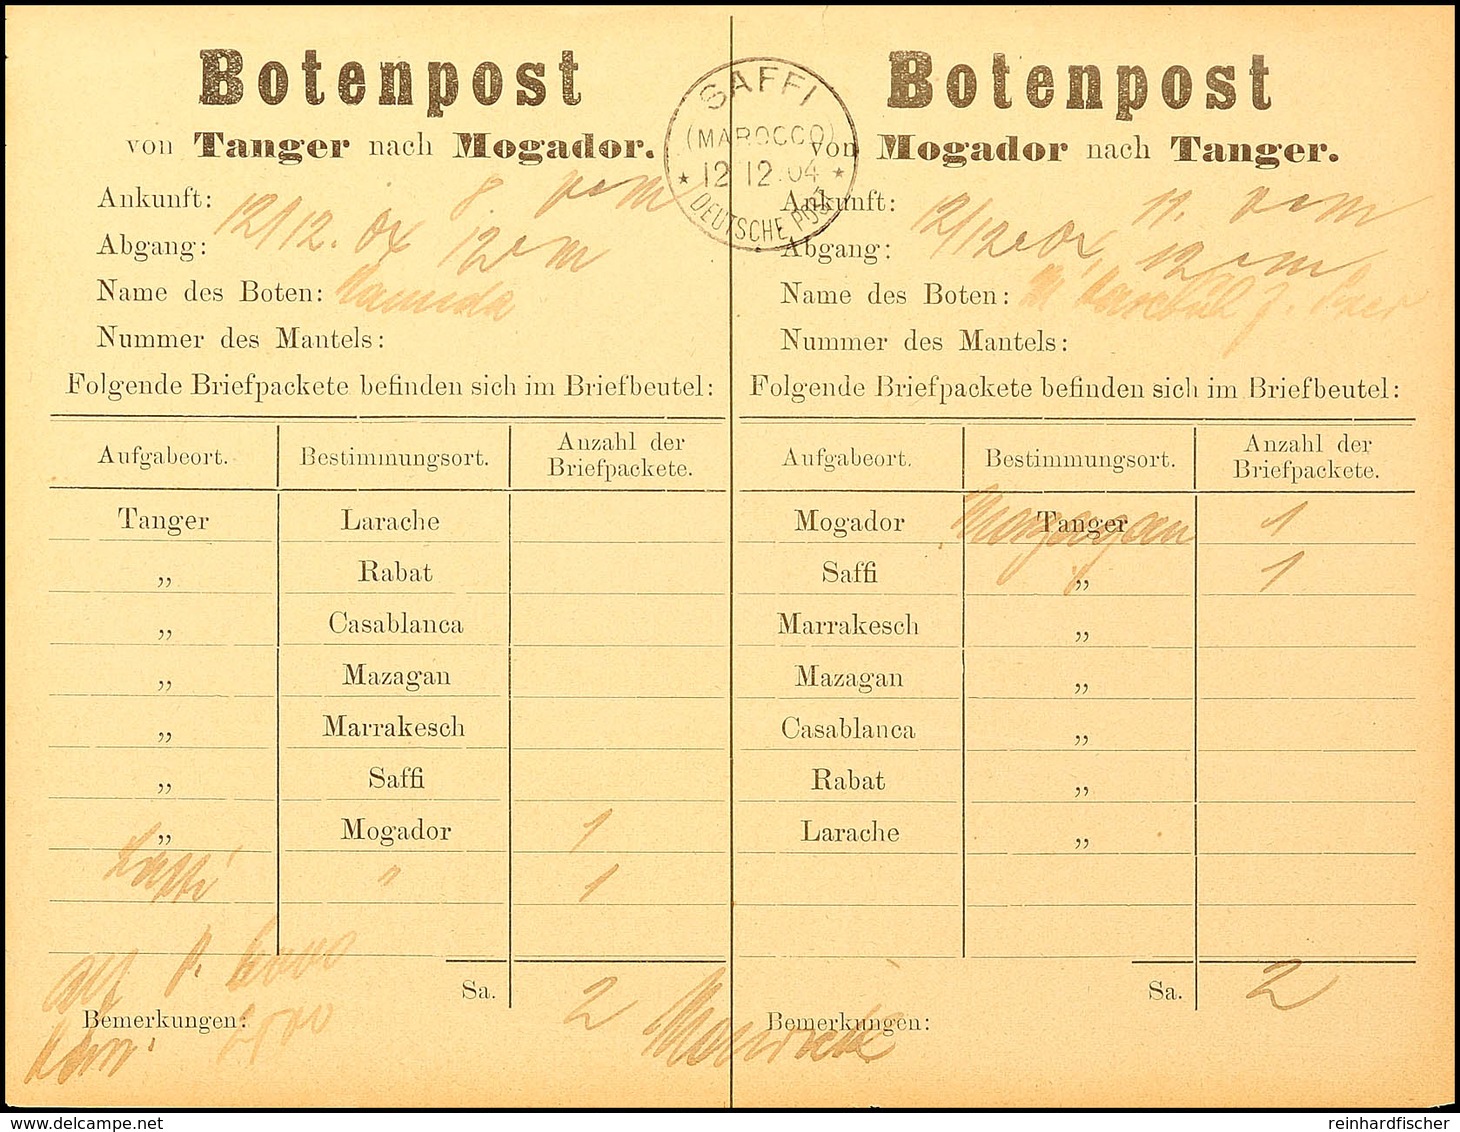 Botenpost
von Tanger nach Mogador.
Ankunft: 12/12. 04 8. vm
Abgang: 12 vm
Name des Boten: Hamida
Nummer des Mantels:
Folgende Briefpackete befinden sich im Briefbeutel:
Aufgabeort. Bestimmungsort. Anzahl der Briefpackete.
Tanger Larache
„ Rabat
„ Casablanca
„ Mazagan
„ Marrakesch
„ Saffi
„ Mogador 1
Saffi " 1
Sa. 2
Bemerkungen:
SAFFI
(MAROCCO)
* 12 12 04 *
DEUTSCHE POST
Botenpost
von Mogador nach Tanger.
Ankunft: 12/12 04 11. vm
Abgang: 12 vm
Name des Boten:
Nummer des Mantels:
Folgende Briefpackete befinden sich im Briefbeutel:
Aufgabeort. Bestimmungsort. Anzahl der Briefpackete.
Mogador Tanger Mazagan 1
Saffi „ 1
Marrakesch „
Mazagan „
Casablanca „
Rabat „
Larache „
Sa. 2
Bemerkungen:
reinhardfischer